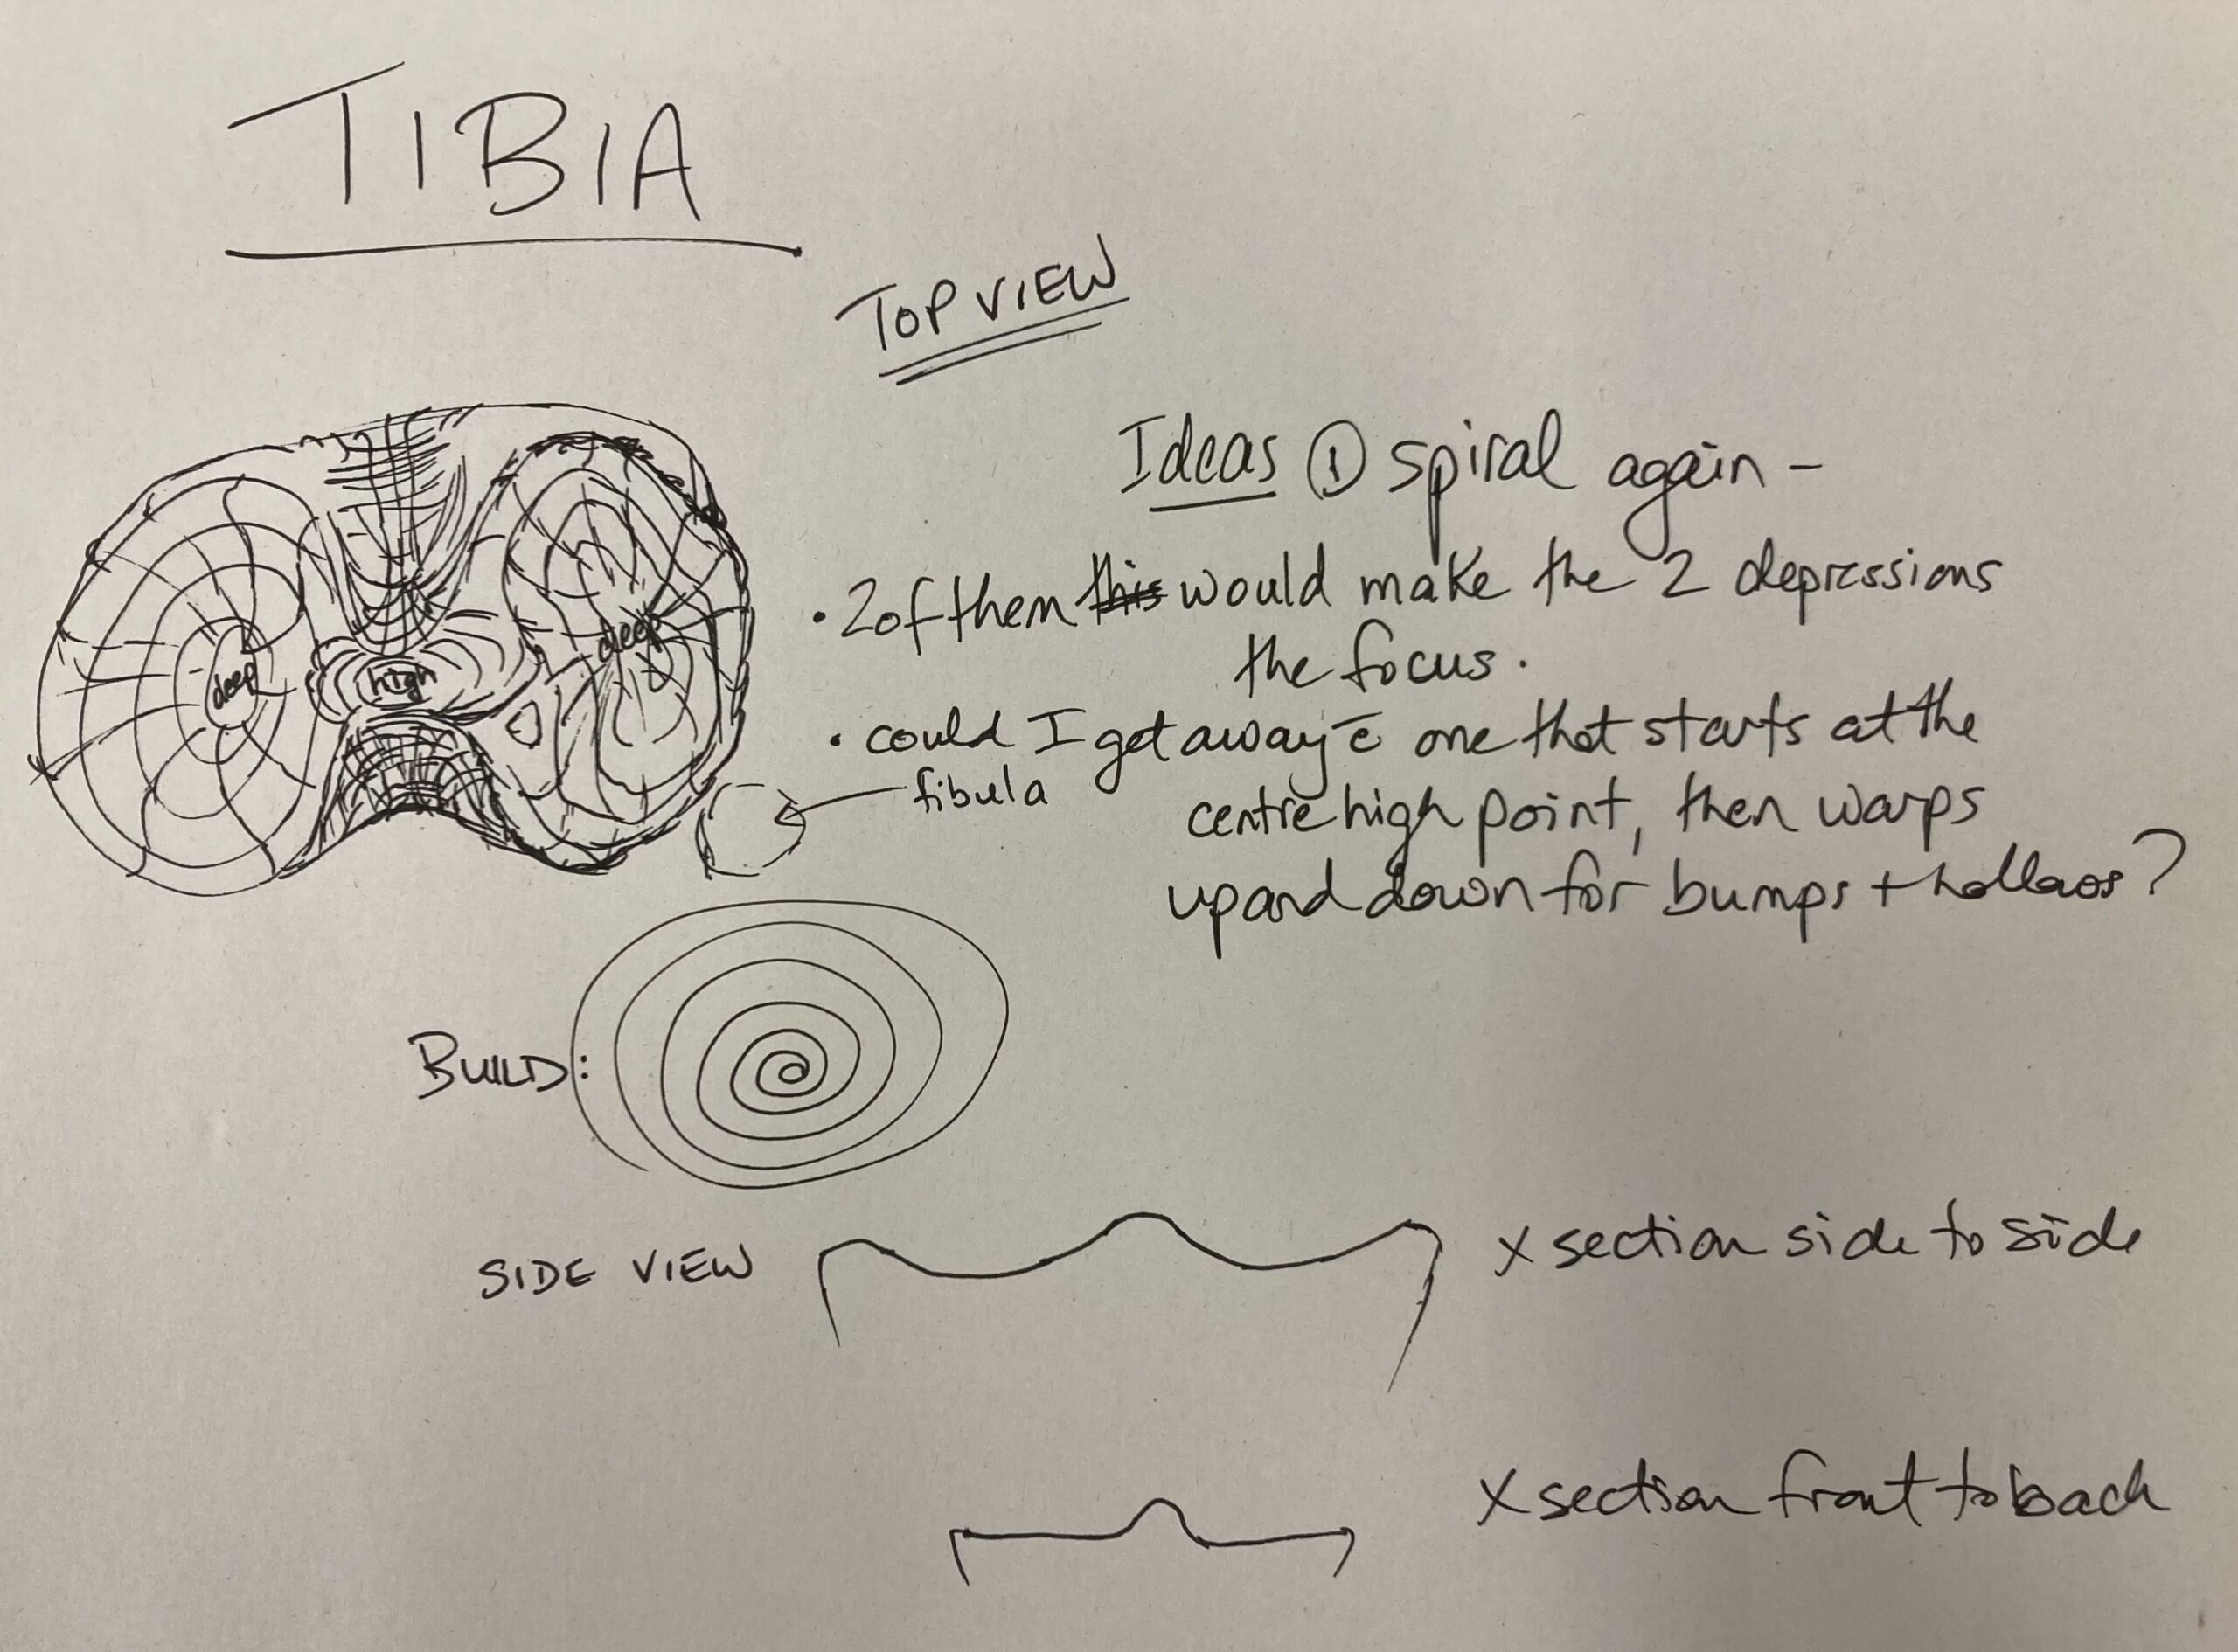 TIBIA
TOP VIEW
Ideas ① spiral again –
• 2 of them this would make the 2 depressions
the focus.
• could I get away c̄ one that starts at the
centre high point, then warps
up and down for bumps + hollows?
deep
high
deep
fibula
BUILD:
SIDE VIEW
X section side to side
X section front to back